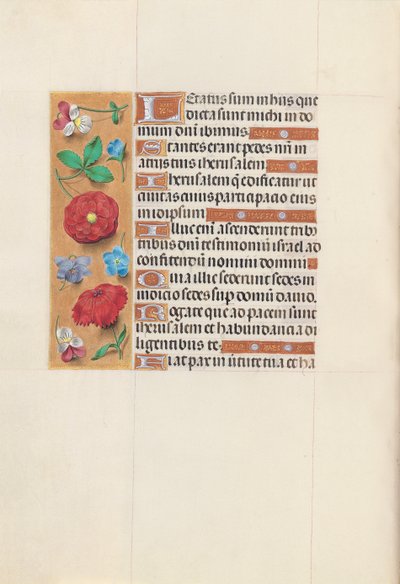 Letatus sum in hijs que
dicta sunt michi in do
mum dn̄i ibimus
Stantes erant pedes nr̄i in
atrijs tuis iherusalem
Iherusalem q̄ edificatur ut
ciuitas cuius participacio eius
in idipsum
Illuc em̄ ascenderunt tribꝰ
tribus dn̄i testimoniū israel ad
confitendū nomini domini
Quia illic sederunt sedes in
iudicio sedes sup domū dauid
Rogate que ad pacem sunt
iherusalem et habundancia di
ligentibus te
Fiat pax in uirtute tua et ha